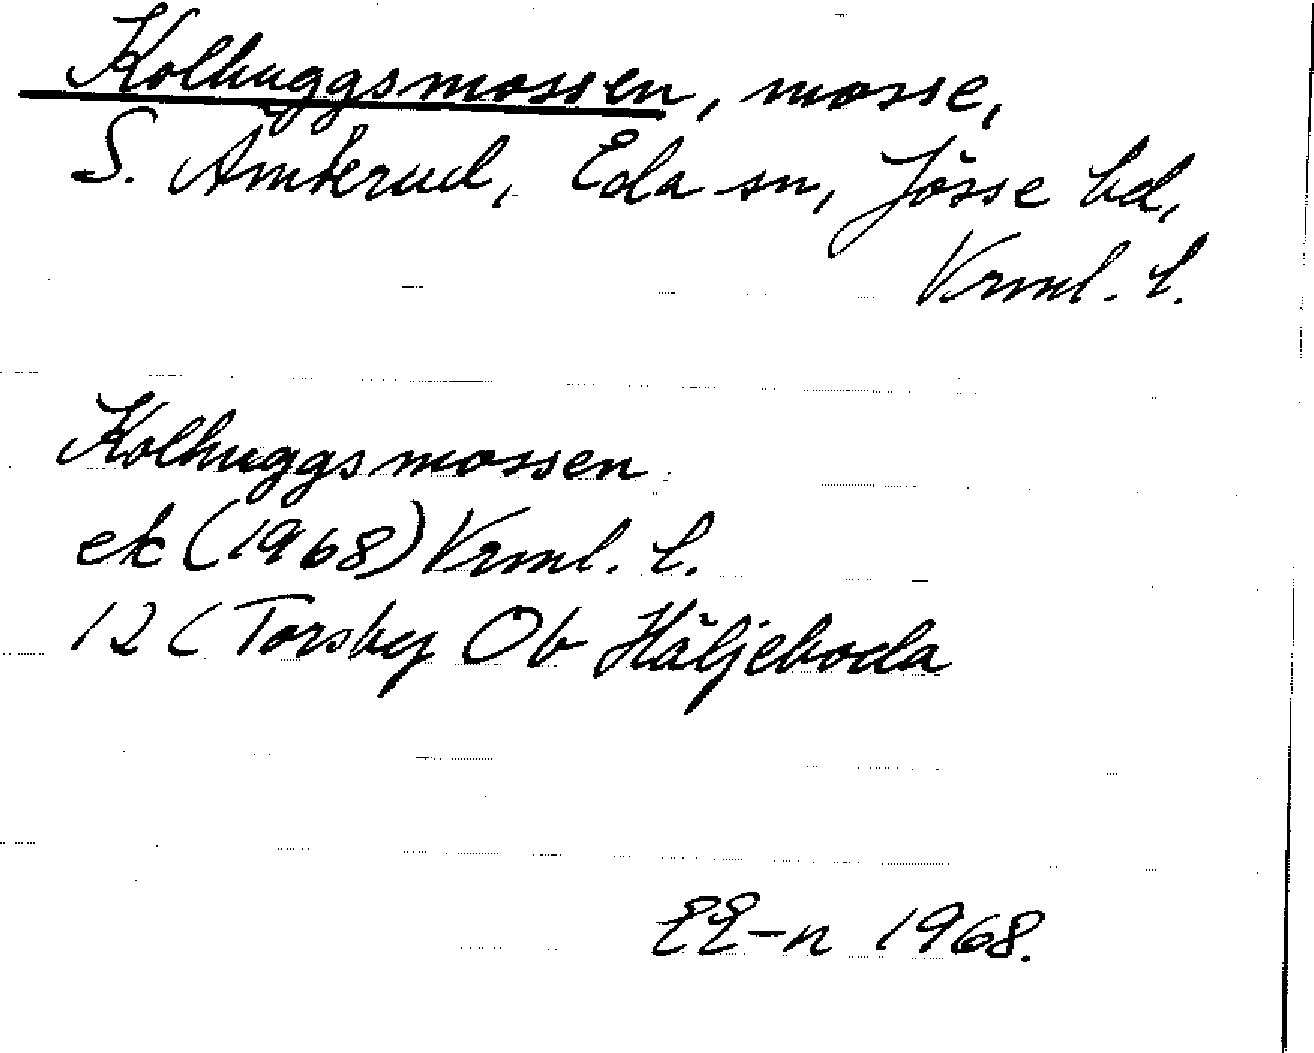 Kolhuggsmossen, mosse,
S. Åmterud, Eda sn, Jösse hd,
Vrml. l.
Kolhuggsmossen
ek (1968) Vrml. l.
12 C Torsby Ob Häljeboda
EE-n 1968.